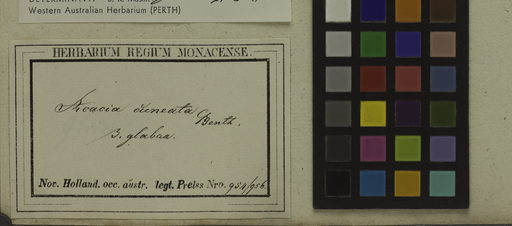 Western Australian Herbarium (PERTH)
HERBARIUM REGIUM MONACENSE.
Acacia cuneata Benth.
β. glabra.
Nov. Holland. occ. austr. legt. Preiss Nro. 954/956.